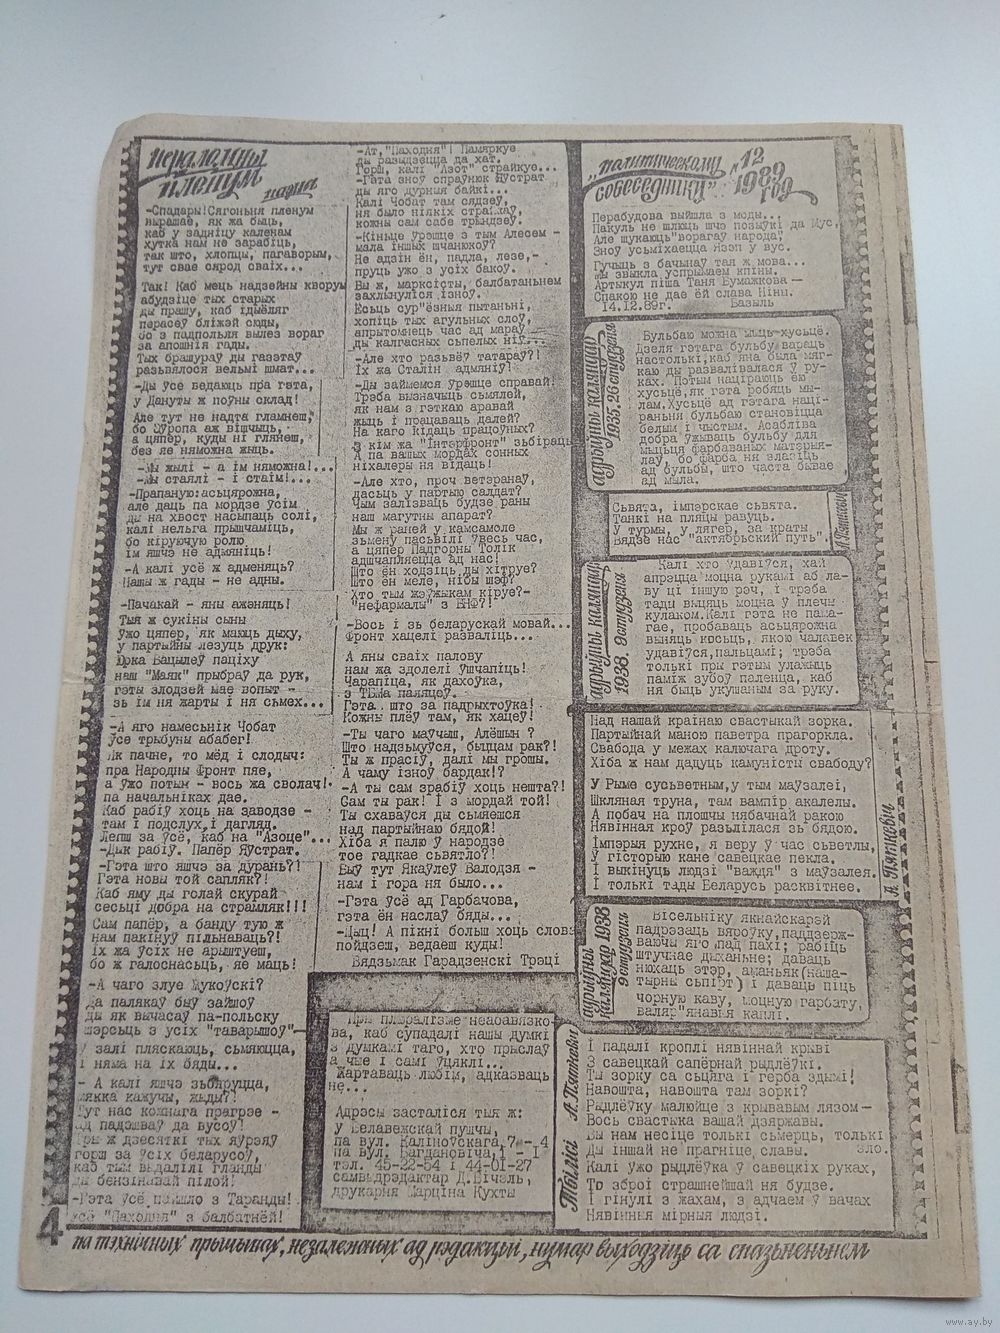 пленум
-Спадары! Сягоньня пленум
вырашае, як жа быць,
каб у задніцу каленам
хутка нам не зарабіць,
так што, хлопцы, пагаворым,
тут свае сярод сваіх...
Так! Каб мець надзейны кворум
абудзіце тых старых
ды прашу, каб ідыёляг
перасеў бліжэй сюды,
бо з падпольля вылез вораг
за апошнія гады.
Тых брашураў ды газэтаў
разьвялося вельмі шмат...
-Ды ўсе ведаюць пра гэта,
у Дануты ж поўны склад!
Але тут не надта гламнеш,
бо Эўропа аж вішчыць,
а цяпер, куды ні глянеш,
без яе няможна жыць.
-Мы жылі - а ім няможна!...
-Мы стаялі - і стаім!...
-Прапаную: асьцярожна,
але даць па мордзе ўсім
ды на хвост насыпаць солі,
калі нельга прышчаміць,
бо кіруючую ролю
ім яшчэ не адмяніць!
-А калі усё ж адменяць?
Нашы ж гады - не адны.
-Пачакай - яны ажэняць!
Тыя ж сукіны сыны
ўжо цяпер, як маюць дыху,
у партыйны лезуць друк:
Юрка Вацылеў паціху
наш "Маяк" прыбраў да рук,
гэты злодзей мае вопыт -
зь ім ня жарты і ня сьмех...
-А яго намесьнік Чобат
ўсе трыбуны абабег!
Як пачне, то мёд і слодыч:
пра Народны Фронт пяе,
а ўжо потым - вось жа сволач!-
па начальніках дае.
Каб рабіў хоць на заводзе -
там і подслух, і дагляд.
Лепш за ўсё, каб на "Азоце"...
-Дык рабіў. Папёр Яўстрат.
-Гэта што яшчэ за дурань?!
Гэта новы той сапляк?!
Каб яму ды голай скурай
сесьці добра на страмляк!!!
Сам папёр, а банду тую ж
нам пакінуў пільнаваць?!
Іх жа ўсіх не арыштуеш,
бо ж галоснасьць, яе маць!
-А чаго злуе Жукоўскі?
Да палякаў быў зайшоў
ды як вычасаў па-польску
шэрсьць з усіх "таварышоў"-
У залі пляскаюць, сьмяюцца,
і няма на іх бяды...
- А калі яшчэ зьбяруцца,
мякка кажучы, жыды?!
Тут нас кожнага прагрэе -
ад падэшваў да вусоў!
Тры ж дзесяткі тых яўрэяў
горш за ўсіх беларусоў,
каб тым выдалілі гланды
ды бензінавай пілой!
-Гэта ўсё пайшло з Таранды!
Усё "Паходня" з балбатнёй!
-Ат, "Паходня"! Памяркуе
ды разыдзецца да хат.
Горш, калі "Азот" страйкуе...
-Гэта зноў спраўнюк Яўстрат
ды яго дурныя байкі...
Калі Чобат там сядзеў,
ня было ніякіх страйкаў,
кожны сам сабе трындзеў.
-Кіньце ўрэшце з тым Алесем -
мала іншых шчанюкоў?
Не адзін ён, падла, лезе,-
пруць ужо з усіх бакоў.
Вы ж, марксісты, балбатаньнем
захлынуліся ізноў.
Ёсьць сур"ёзныя пытаньні,
хопіць тых агульных слоў,
апрытомнець час ад мараў
ды калгасных сьпелых ніў...
-Але хто разьвёў татараў?!
Іх жа Сталін адмяніў!
-Ды займемся ўрэшце справай!
Трэба вызначыць сьмялей,
як нам з гэткаю аравай
жыць і працаваць далей?
На каго кідаць працоўных?
З кім жа "Інтэрфронт" зьбіраць
А па вашых мордах сонных
ніхалеры ня відаць!
-Але хто, проч ветэранаў,
дасьць у партыю салдат?
Чым залізваць будзе раны
наш магутны апарат?
Мы ж раней у камсамоле
зьмену пасьвілі ўвесь час,
а цяпер Падгорны Толік
адшчапляецца ад нас!
Што ён ходзіць ды хітруе?
Што ён меле, нібы шэф?
Хто тым жэўжыкам кіруе?-
"нефармалы" з БНФ?!
-Вось і зь беларускай мовай...
Фронт хацелі разваліць...
А яны сваіх палову
нам жа здолелі ўшчапіць!
Чарапіца, як дахоўка,
з ТБМа паляцеў.
Гэта што за падрыхтоўка!
Кожны плёў там, як хацеў!
-Ты чаго маўчыш, Алёшын ?
Што надзьмуўся, быццам рак?!
Ты ж прасіў, далі мы грошы.
А чаму ізноў бардак!?
-А ты сам зрабіў хоць нешта?!
Сам ты рак! І з мордай той!
Ты схаваўся ды сьмяешся
над партыйнаю бядой!
Хіба я палю ў народзе
тое гадкае сьвятло?!
Быў тут Якаўлеў Валодзя -
нам і гора ня было...
-Гэта ўсё ад Гарбачова,
гэта ён наслаў бяды...
-Цыц! А пікні больш хоць слова
пойдзеш, ведаеш куды!
Вядзьмак Гарадзенскі Трэці
При плюралізме неабавязко-
ва, каб супадалі нашы думкі
з думкамі таго, хто прыслаў
а чые і самі ўцяклі...
Жартаваць любім, адказваць
не...
Адрэсы засталіся тыя ж:
У Белавежскай пушчы,
па вул. Каліноўскага,7 - 4
па вул. Багдановіча,1 - 1
тэл. 45-22-54 і 44-01-27
самвыдрэдактар Д.Бічэль,
друкарня Марціна Кухты
„политическому
собеседнику” №12
1989 год
Перабудова выйшла з моды...
Пакуль не шлюць шчэ позыўкі да Мус,
Але шукаюць "ворагаў народа",
Зноў усьміхаецца Язэп у вус.
Гучыць з бачынаў тая ж мова...
Мы звыкла успрымаем кпіны.
Артыкул піша Таня Бумажкова -
Спакою не дае ёй слава Ніны.
14.12.89г. Базыль
адрыўны каляндар
1935, 26 студзеня
Бульбаю можна мыць хусьцё.
Дзеля гэтага бульбу вараць
настолькі, каб яна была мяг-
каю ды развалівалася ў ру-
ках. Потым націраюць ею
хусьцё, як гэта робяць мы-
лам. Хусьцё ад гэтага наці-
раньня бульбаю становіцца
белым і чыстым. Асабліва
добра ўжываць бульбу для
мыцьця фарбаваных матэрыя-
лаў бо фарба ня злазіць
ад бульбы, што часта бывае
ад мыла.
Сьвята, імпэрскае сьвята.
Танкі на пляцы равуць.
У турмы, у лягер, за краты
Вядзе нас "актябрьский путь".
адрыўны каляндар
1938. 9 студзеня
Калі хто ўдавіўся, хай
апрэцца моцна рукамі аб ла-
ву ці іншую рэч, і трэба
тады выцяць моцна ў плечы
кулаком. Калі гэта не пама-
гае, пробаваць асьцярожна
выняць косьць, якою чалавек
удавіўся, пальцамі; трэба
толькі пры гэтым улажыць
паміж зубоў паленца, каб
ня быць укушаным за руку.
Над нашай краінаю свастыкай зорка.
Партыйнай маною паветра прагоркла.
Свабода у межах калючага дроту.
Хіба ж нам дадуць камуністы свабоду?
У Рыме сусьветным, у тым маўзалеі,
Шкляная труна, там вампір акалелы.
А побач на плошчы нябачнай ракою
Нявінная кроў разьлілася зь бядою.
Імпэрыя рухне, я веру ў час сьветлы,
У гісторыю кане савецкае пекла.
І выкінуць людзі "важдя" з маўзалея.
І толькі тады Беларусь расквітнее.
А. Пяткевіч
адрыўны
каляндар 1938
9 студзеня
Вісельніку якнайскарэй
падрэзаць вяроўку, паддзерж-
ваючы яго пад пахі; рабіць
штучнае дыханьне; даваць
нюхаць этэр, аманьяк (наша-
тырны сьпірт) і даваць піць
чорную каву, моцную гарбату,
валяр"янавыя каплі.
Тбілісі А. Пяткевіч
І падалі кроплі нявіннай крыві
З савецкай сапёрнай рыдлёўкі.
Ты зорку са сьцяга і герба здымі!
Навошта, навошта там зоркі?
Рыдлёўку малюйце з крывавым лязом-
Вось свастыка вашай дзяржавы.
Вы нам несіце толькі сьмерць, толькі
зло.
Ды іншай не прагніце славы.
Калі ўжо рыдлёўка ў савецкіх руках,
То зброі страшнейшай ня будзе.
І гінулі з жахам, з адчаем ў вачах
Нявінныя мірныя людзі.
4
па тэхнічных прычынах, незалежных ад рэдакцыі, нумар выходзіць са спазьненьнем
www.ay.by